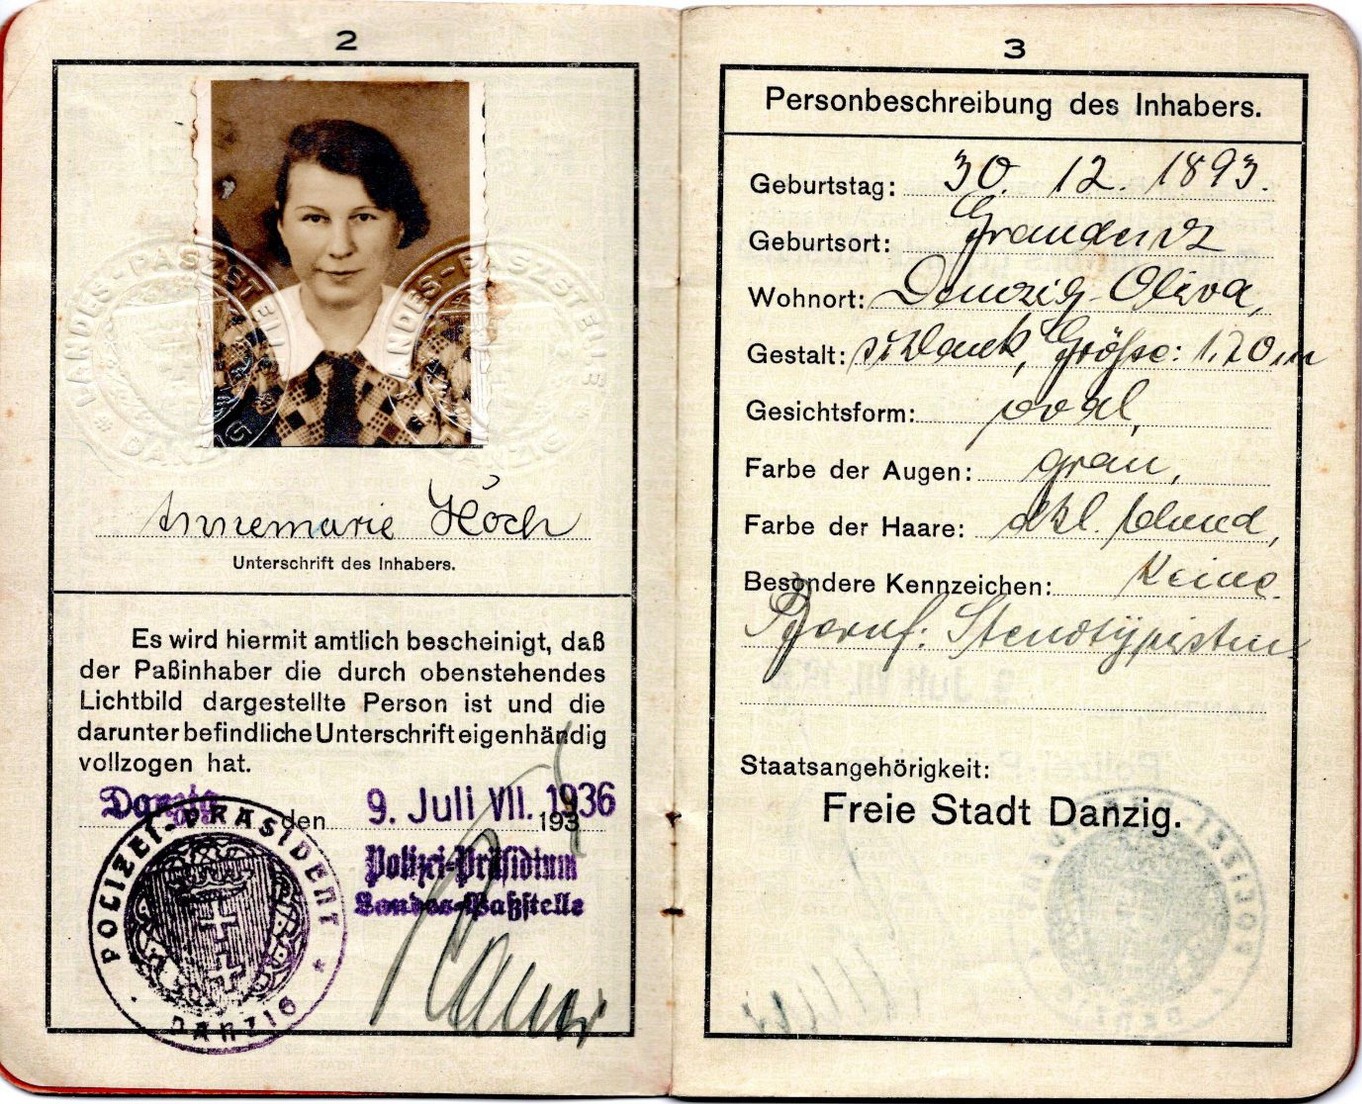 2
LANDES-PASZSTELLE
DANZIG
LANDES-PASZSTELLE
DANZIG
Annemarie Höch
Unterschrift des Inhabers.
Es wird hiermit amtlich bescheinigt, daß
der Paßinhaber die durch obenstehendes
Lichtbild dargestellte Person ist und die
darunter befindliche Unterschrift eigenhändig
vollzogen hat.
Danzig den 9. Juli VII. 1936
193
Polizei-Präsidium
Landes-Paßstelle
POLIZEI-PRÄSIDENT
DANZIG
3
Personbeschreibung des Inhabers.
Geburtstag: 30. 12. 1893.
Geburtsort: Graudenz
Wohnort: Danzig-Oliva,
Gestalt: schlank, Größe: 1.70 m
Gesichtsform: oval,
Farbe der Augen: grau,
Farbe der Haare: dkl. blond,
Besondere Kennzeichen: Keine.
Beruf: Stenotypistin.
Staatsangehörigkeit:
Freie Stadt Danzig.